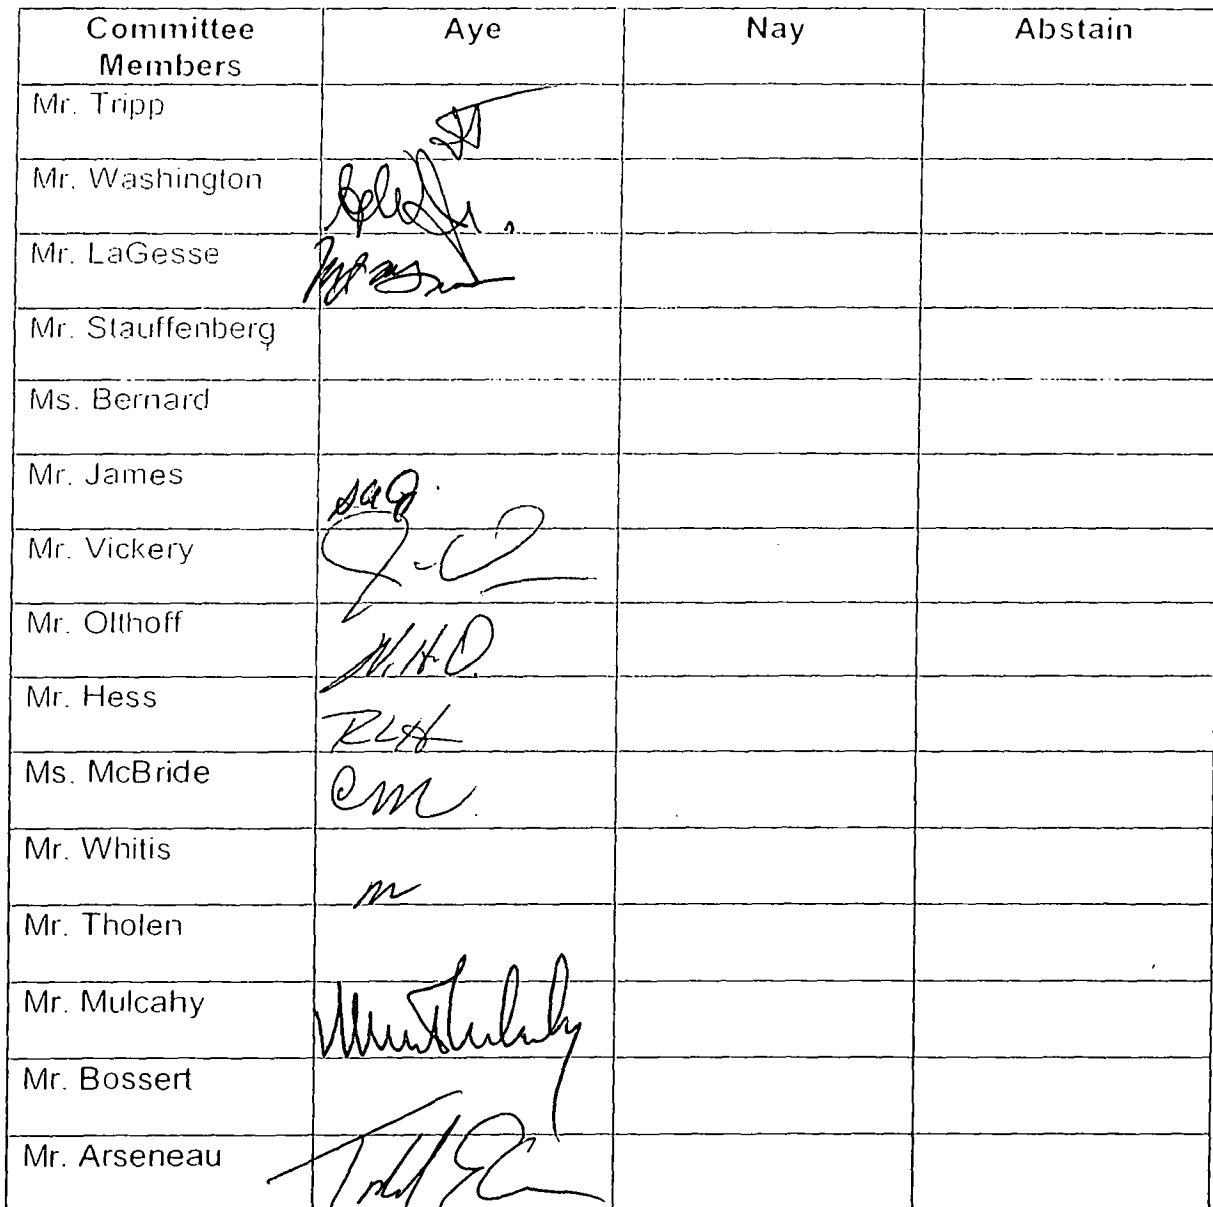 Committee Members Aye Nay Abstain
Mr. Tripp
Mr. Washington
Mr. LaGesse
Mr. Stauffenberg
Ms. Bernard
Mr. James
Mr. Vickery
Mr. Olthoff W.H.O.
Mr. Hess RLH
Ms. McBride CM
Mr. Whitis
Mr. Tholen
Mr. Mulcahy
Mr. Bossert
Mr. Arseneau